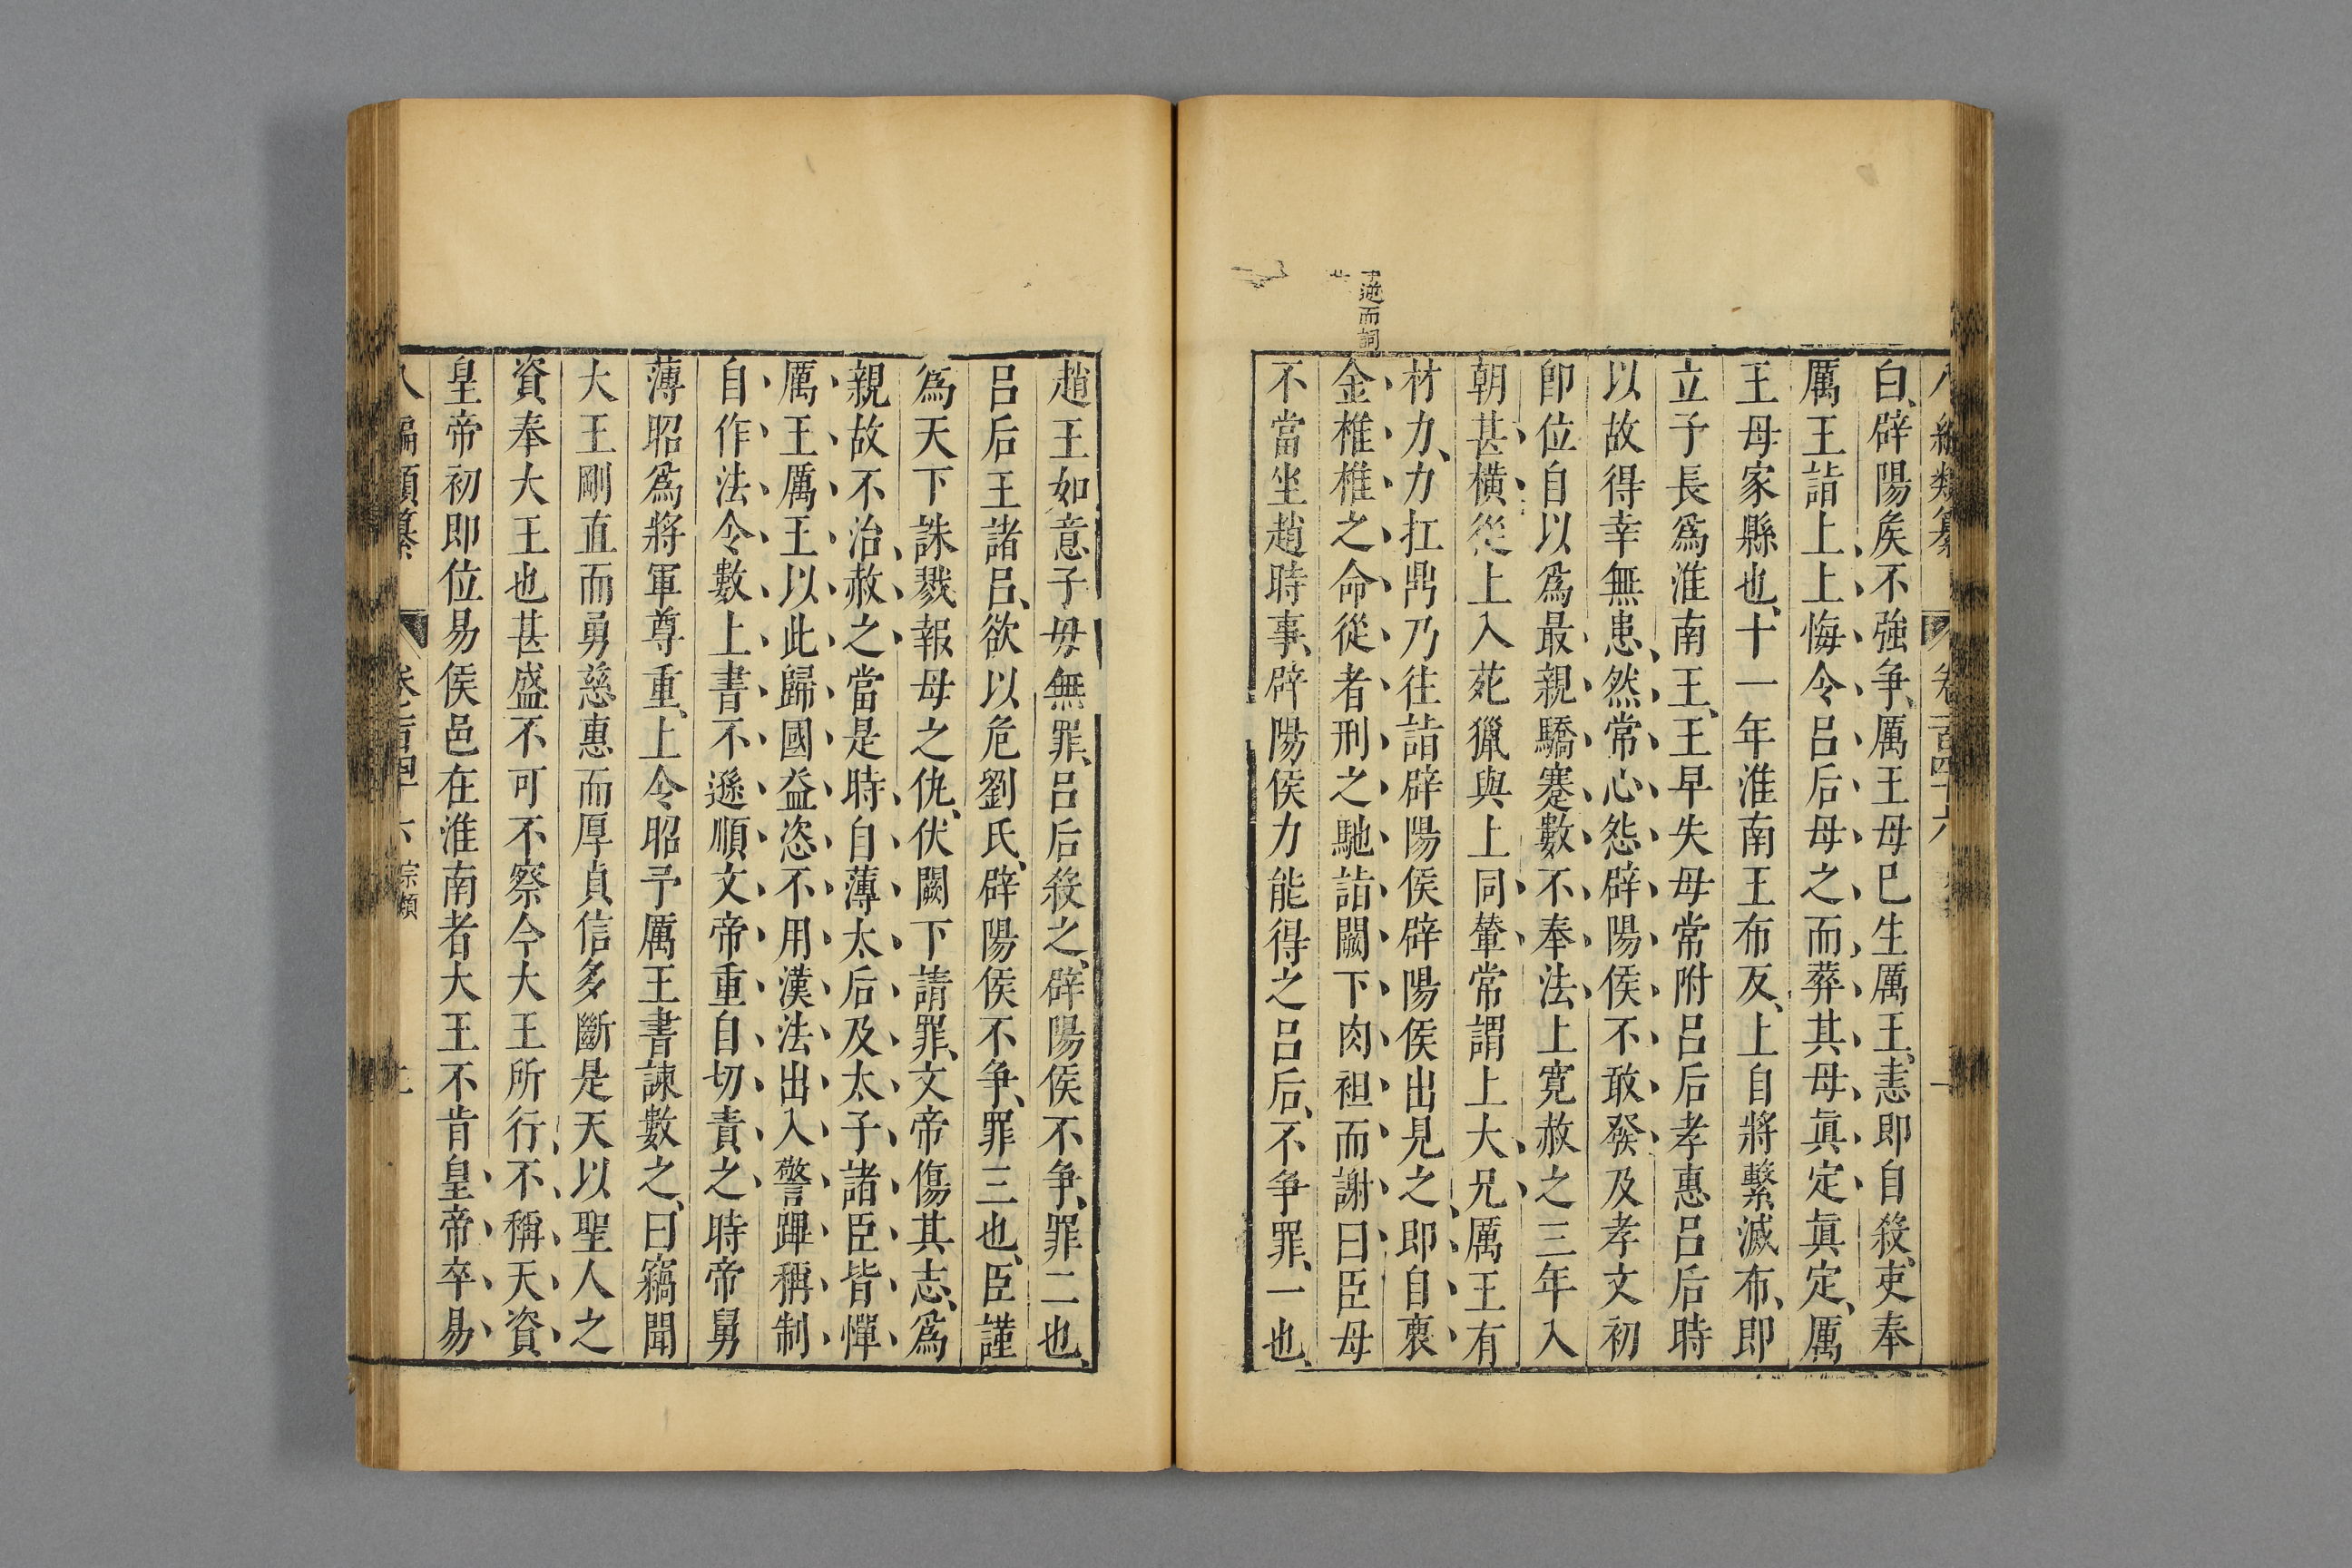 八編類纂 卷一百四十六
白、辟陽矦不強争、厲王母已生厲王、恚即自殺、吏奉
厲王詣上、上悔令呂后母之、而葬其母真定、真定、厲
王母家縣也、十一年淮南王布反、上自將繫滅布、即
立子長爲淮南王、王早失母常附呂后孝惠呂后時
以故得幸無患、然常心怨辟陽侯不敢發及孝文初
即位自以爲最親驕蹇數不奉法、上寬赦之三年入
朝甚橫從上入苑獵與上同輦常謂上大兄厲王有
材力、力扛鼎乃往詣辟陽侯辟陽侯出見之、即自褏
金椎椎之命從者刑之馳詣闕下肉袒而謝曰臣母
不當坐趙時事、辟陽侯力能得之呂后、不争罪、一也、
逆而詞
趙王如意子母無罪、呂后殺之、辟陽侯不争、罪二也、
呂后王諸呂、欲以危劉氏、辟陽侯不争、罪三也、臣謹
爲天下誅戮報母之仇、伏闕下請罪、文帝傷其志、爲
親故不治、赦之當是時、自薄太后及太子諸臣皆憚
厲王厲王以此歸國益恣不用漢法出入警蹕稱制
自作法令數上書不遜順文帝重自切責之、時帝舅
薄昭爲將軍尊重、上令昭予厲王書諫數之、曰竊聞
大王剛直而勇慈惠而厚貞信多斷是天以聖人之
資奉大王也甚盛不可不察今大王所行、不稱天資、
皇帝初即位易侯邑在淮南者大王不肯皇帝卒易
八編類纂 卷一百四十六 宗類